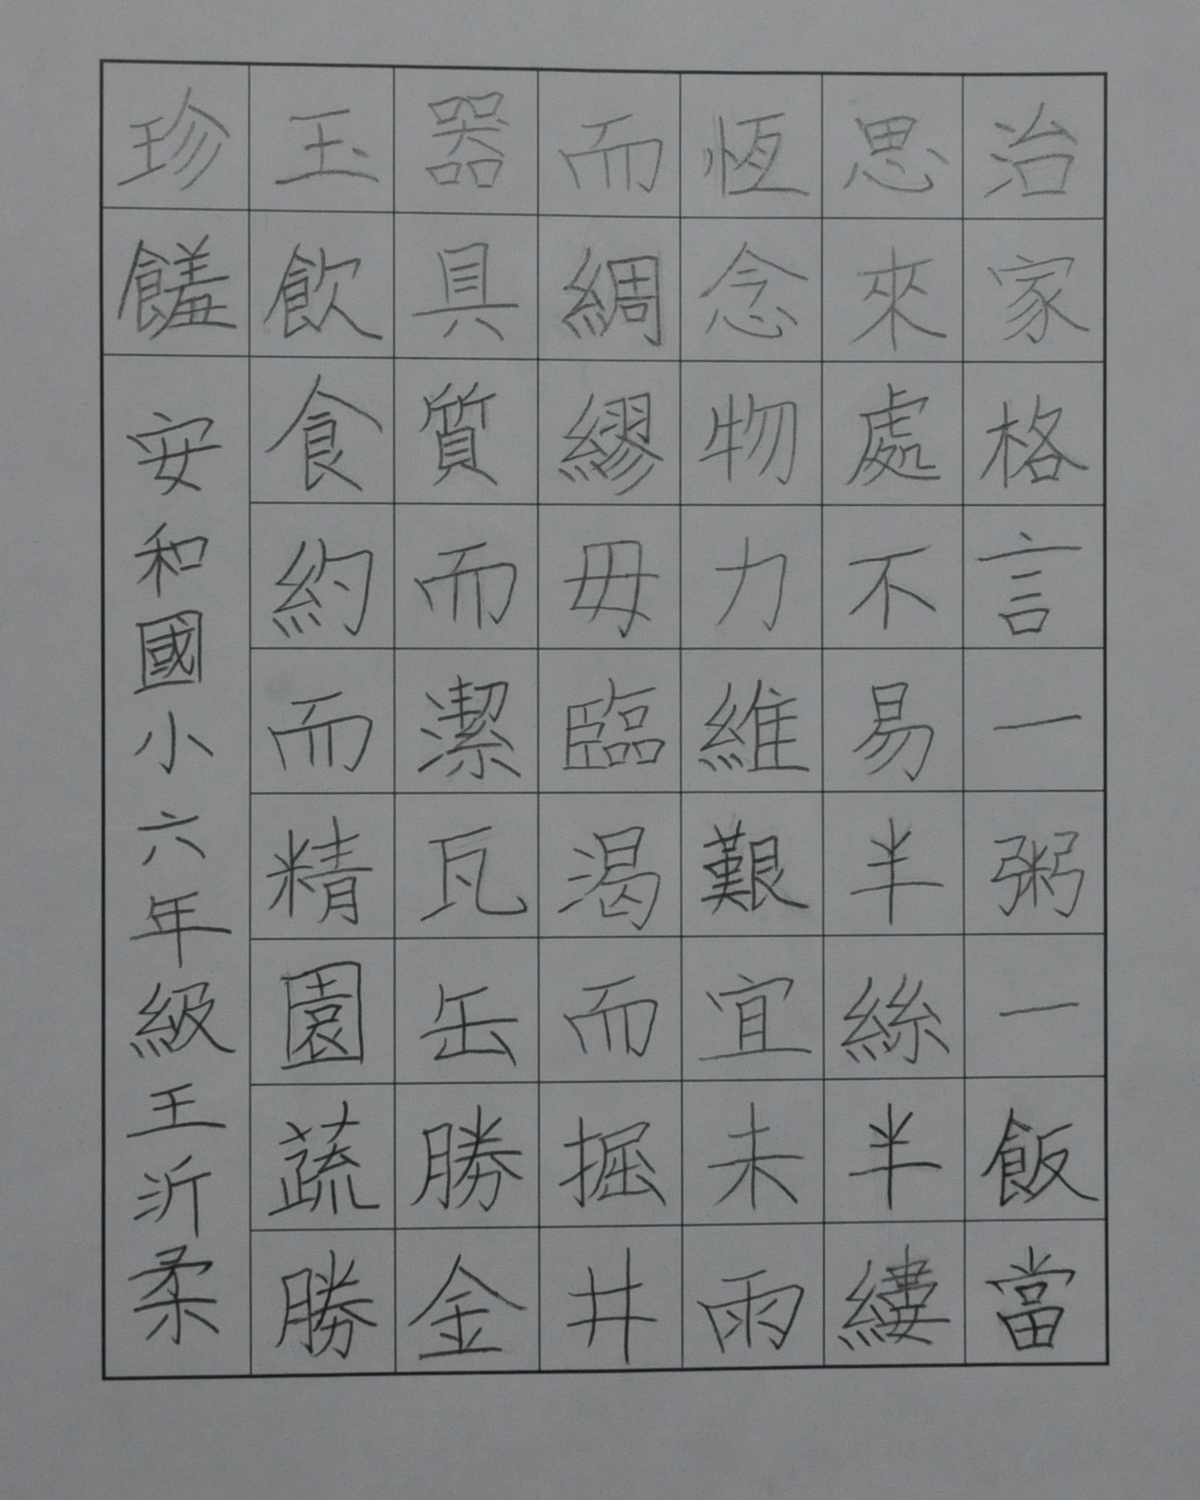 治家格言一粥一飯當
思來處不易半絲半縷
恆念物力維艱宜未雨
而綢繆毋臨渴而掘井
器具質而潔瓦缶勝金
玉飲食約而精園蔬勝
珍饈
安和國小六年級王沂柔